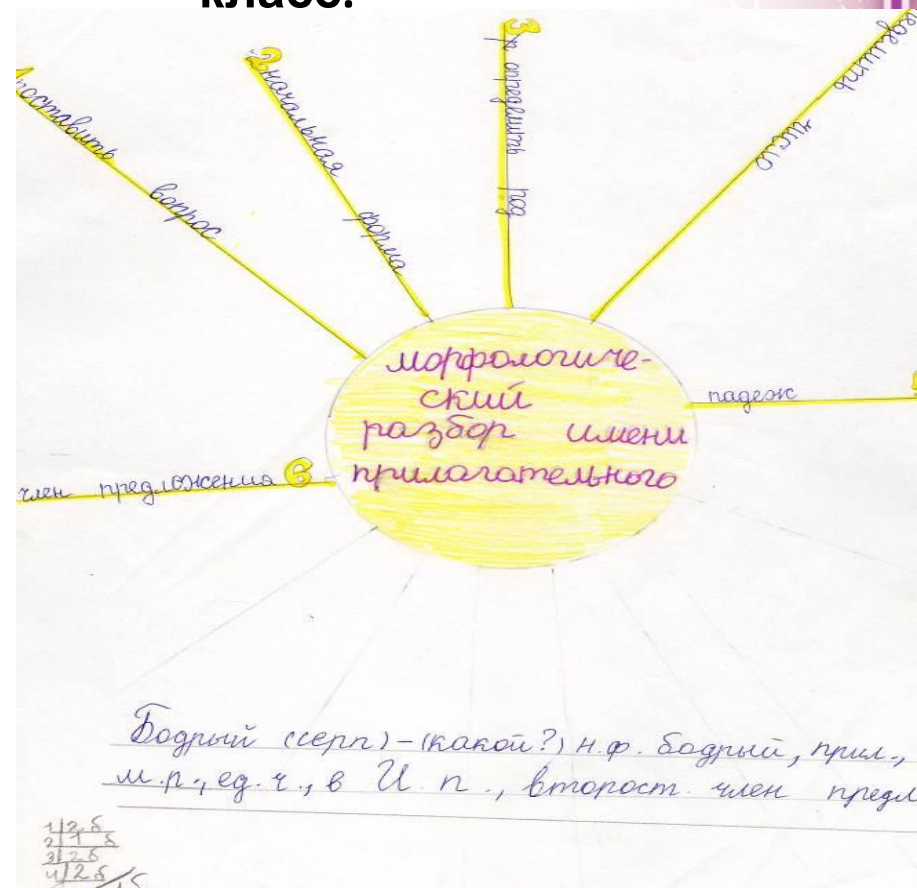 класс.
1 поставить вопрос
2 начальная форма
3 определить род
число
падеж
член предложения 6
морфологиче-
ский
разбор имени
прилагательного
Бодрый (серп) – (какой?) н.ф. бодрый, прил.,
м.р., ед.ч., в И.п., второст. член предл
1|2 б
2|1 б
3|2 б
4|2 б